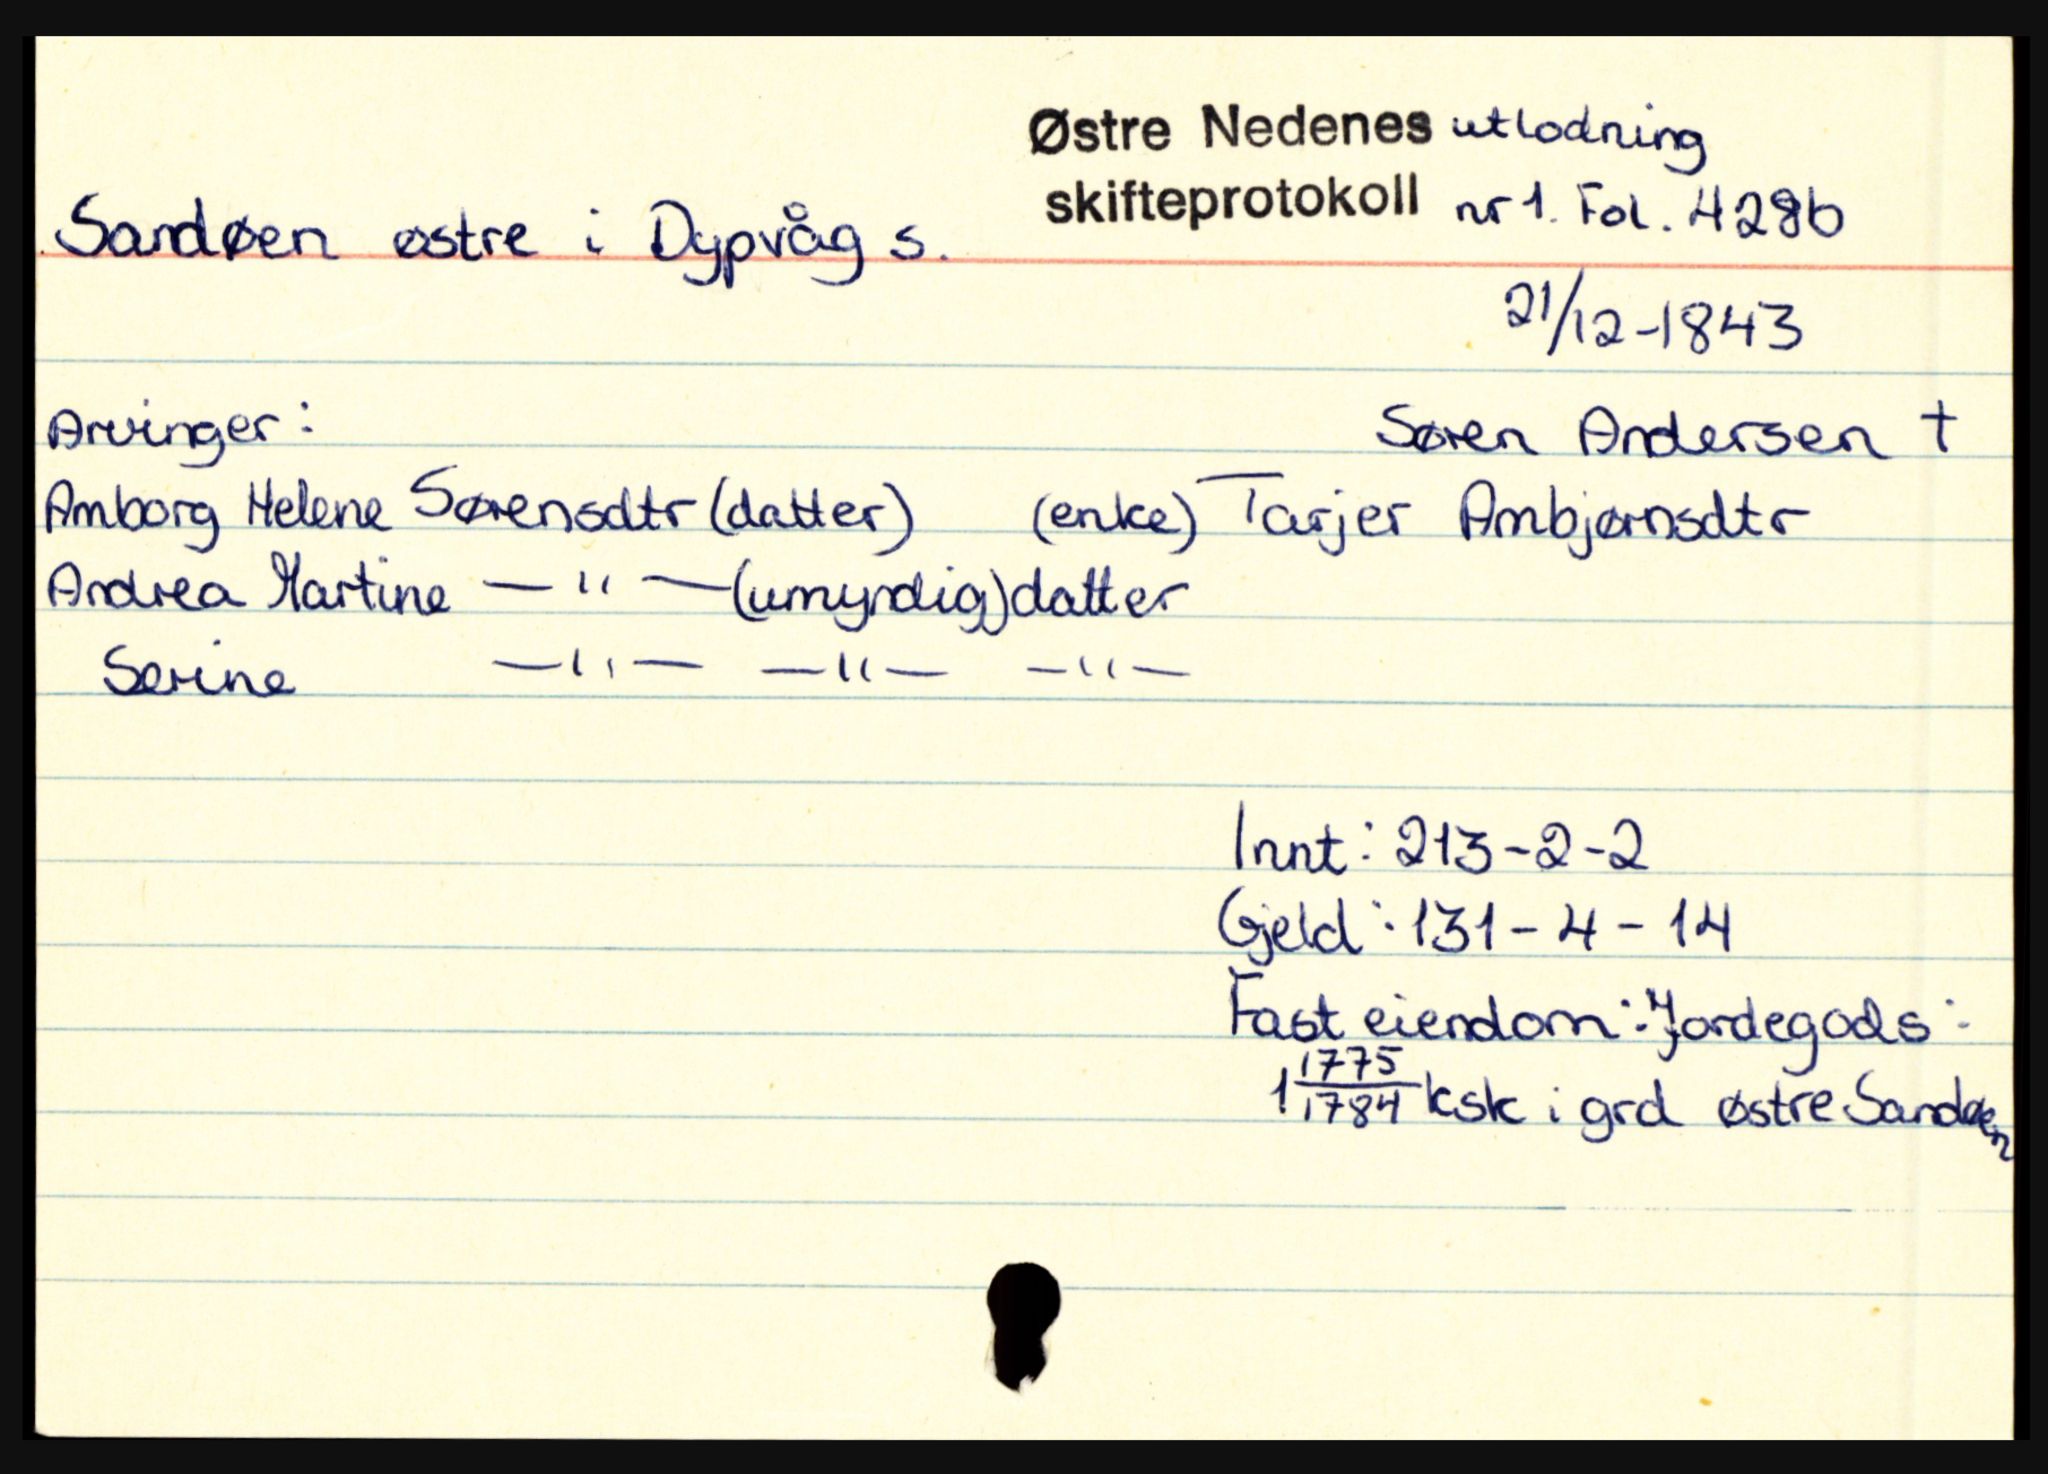 Østre Nedenes utlodning
skifteprotokoll nr 1. Fol. 428b
Sandøen østre i Dypvåg s.
21/12-1843
Arvinger: Søren Andersen †
Amborg Helene Sørensdtr (datter) (enke) Tarjer Ambjørnsdtr
Andrea Martine — " — (umyndig) datter
Serine — " — — " — — " —
Innt: 213-2-2
Gjeld: 131-4-14
Fast eiendom: Jordegods:
1 1775/1784 ksk i grd østre Sandøen